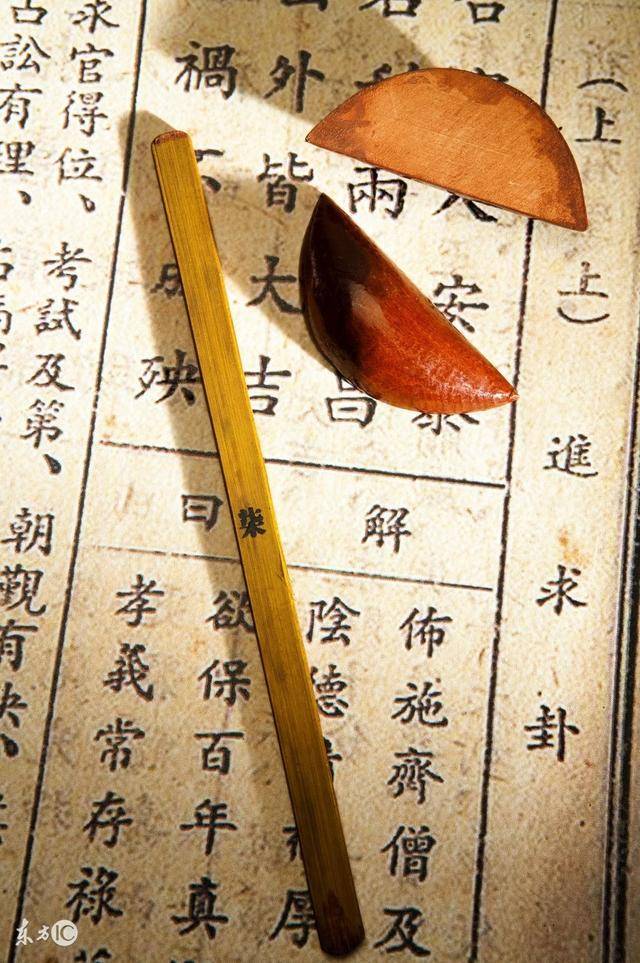 （上上）進求卦
安泰
兩昌
外皆大吉
禍不成殃
解曰
佈施齊僧及
陰德厚
欲保百年真
孝義常存祿
求官得位、考試及第、朝觀有
占訟有理、占病
柒
东方IC